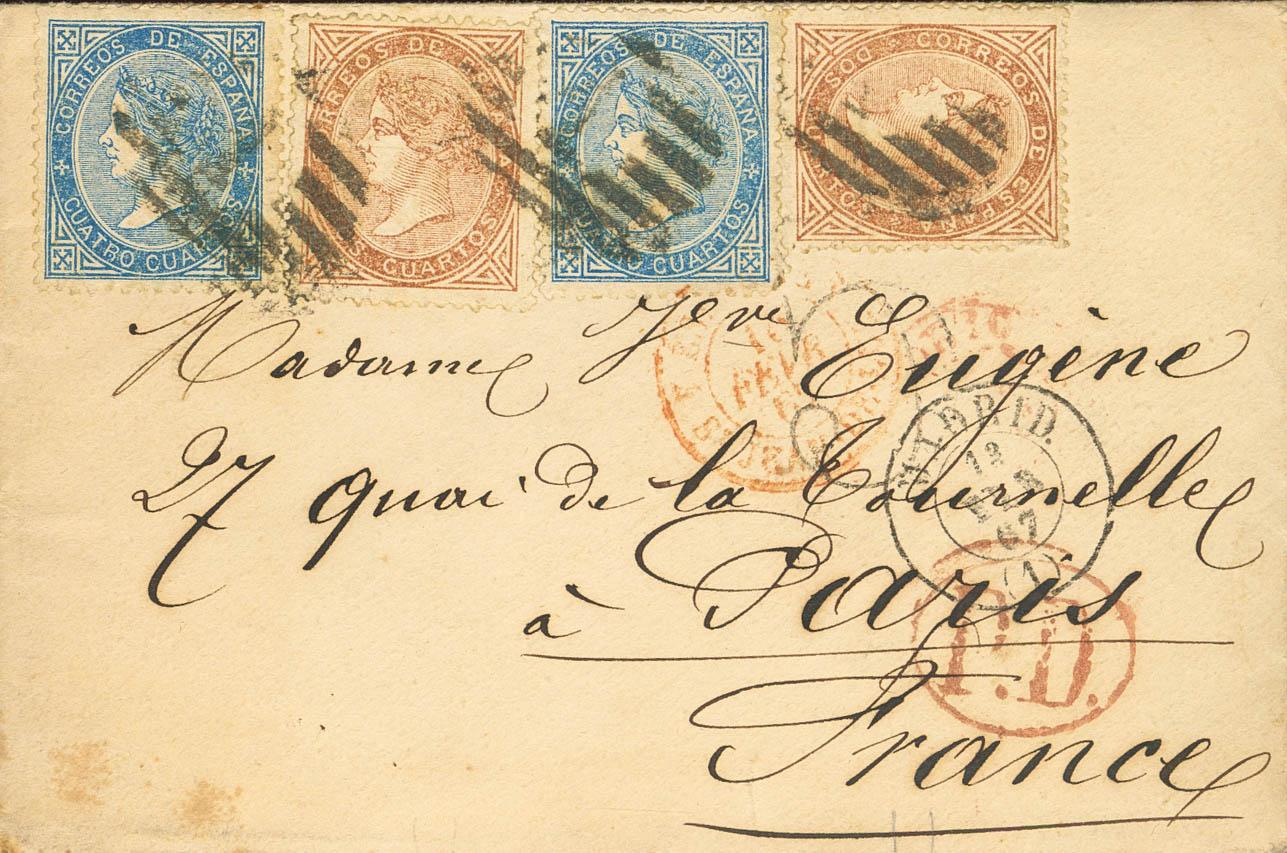 CORREOS DE ESPAÑA
CUATRO CUARTOS
CORREOS DE
CUARTOS
CORREOS DE ESPAÑA
CUATRO CUARTOS
CORREOS DE ESPAÑA
DOS
Madame Vve Eugène
27 quai de la Tournelle
à Paris
France
MADRID.
12
FEB
67
(1)
P.D.